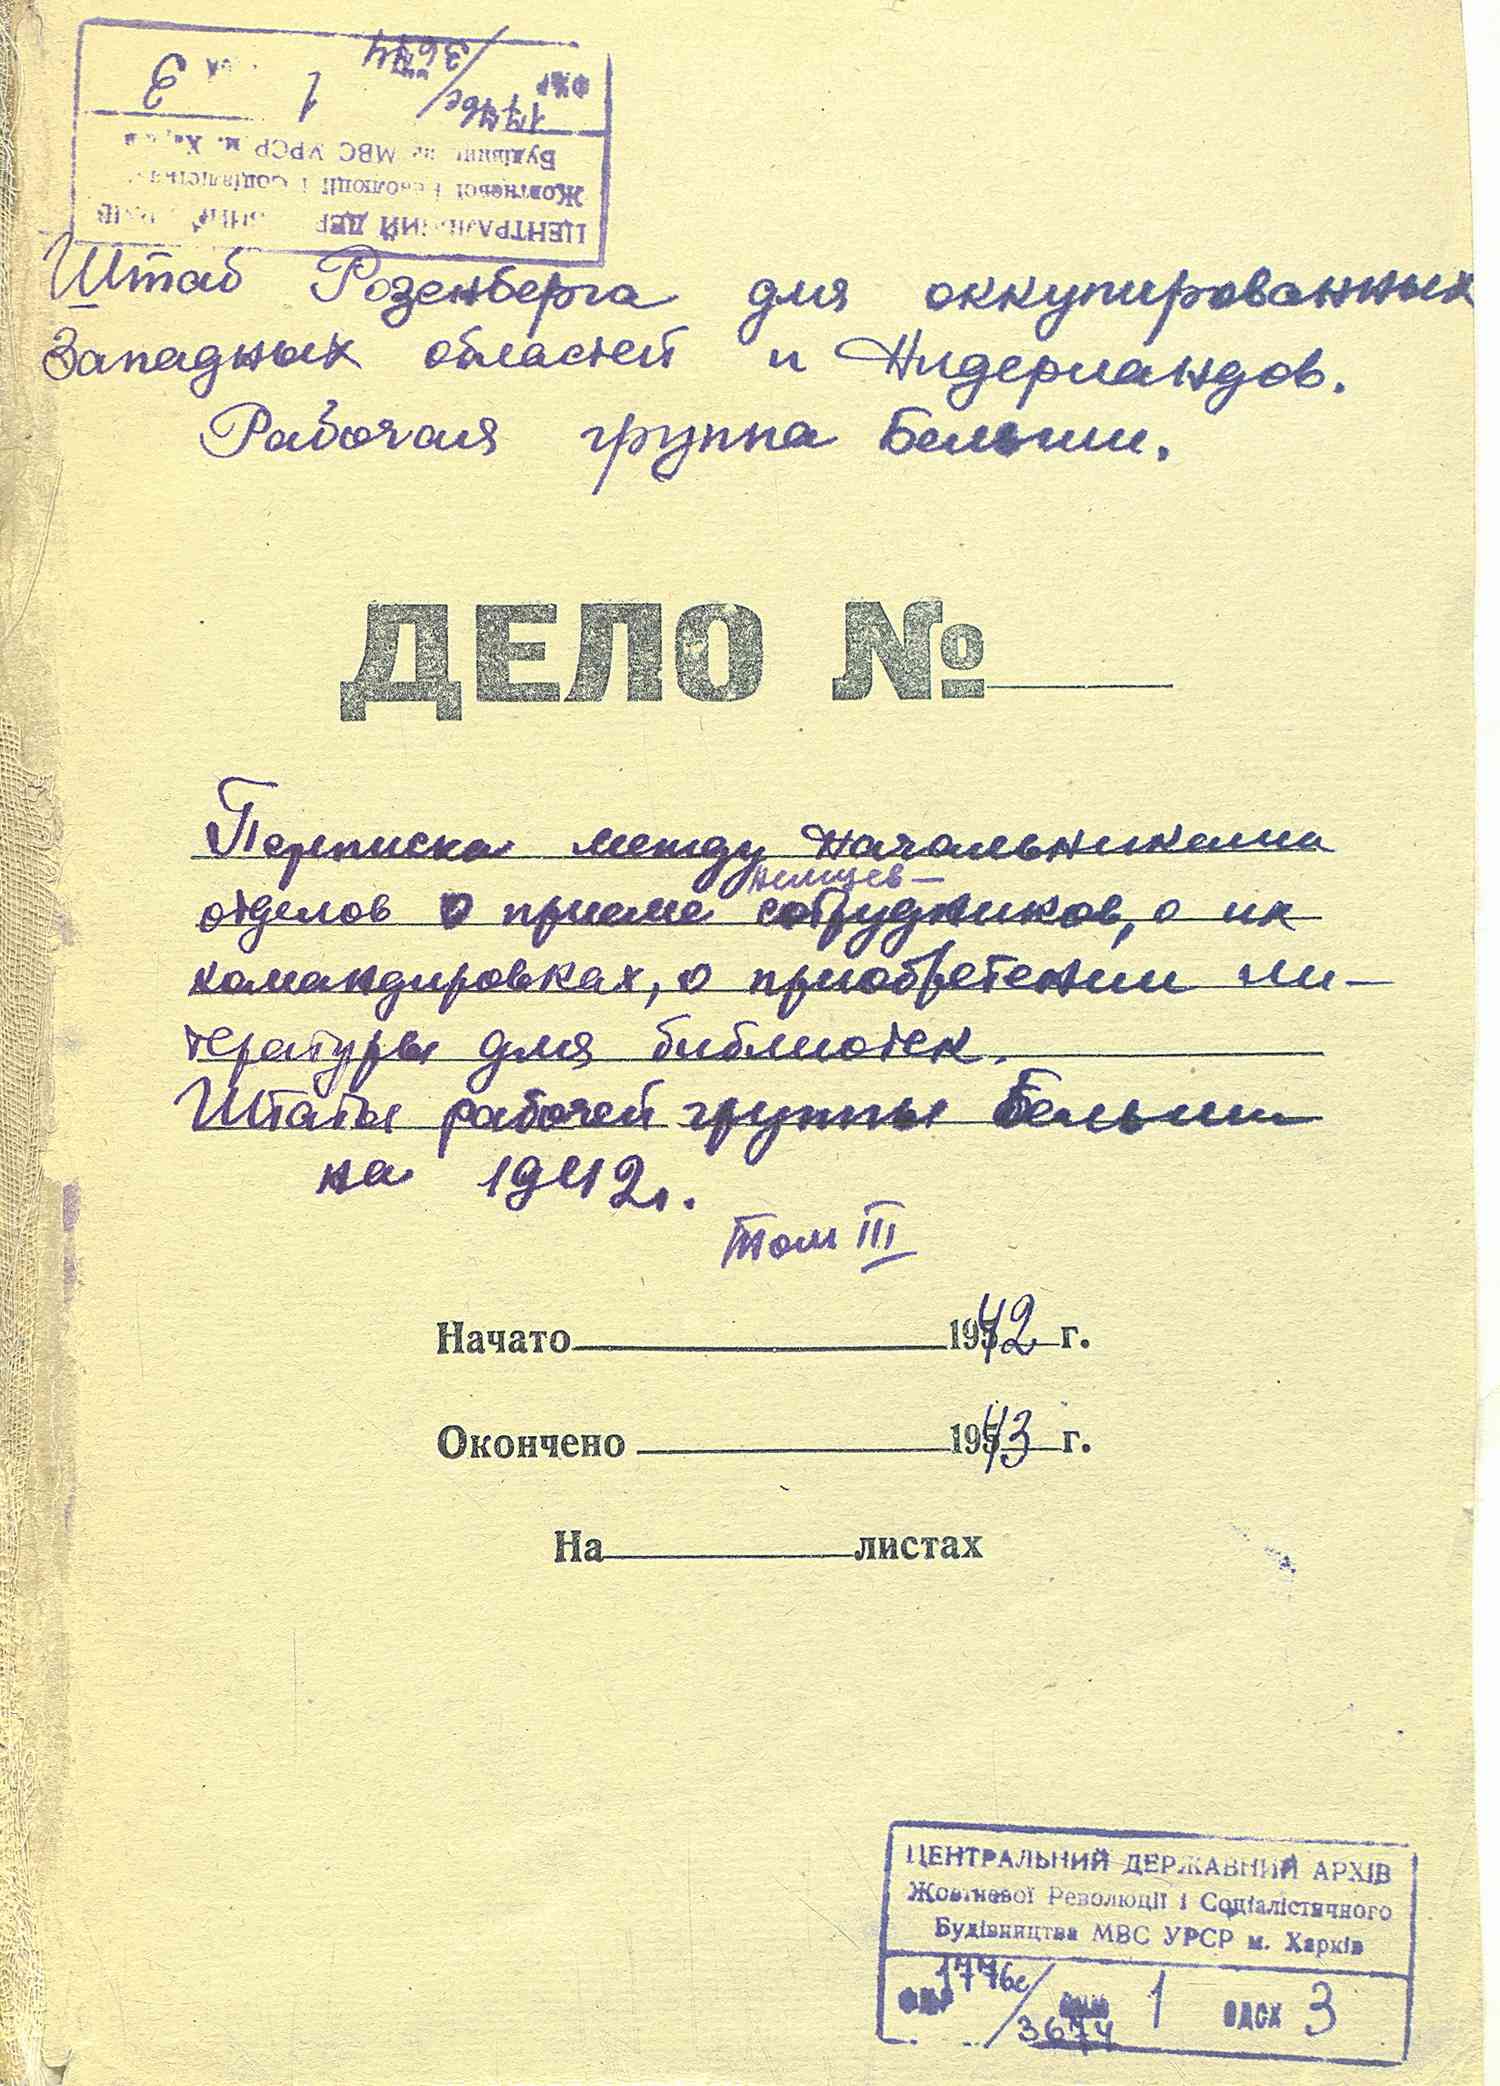 ЦЕНТРАЛЬНИЙ ДЕР
Жовтневої Революції і Соціаліст
МВС УРСР м.
1776с / 3674 1 3
Штаб Розенберга для оккупированных
Западных областей и Нидерландов.
Рабочая группа Бельгии.
ДЕЛО №
Переписка между начальниками
немцев–
отделов о приеме сотрудников, о их
командировках, о приобретении ли–
тературы для библиотек.
Штаты рабочей группы Бельгии
на 1942г.
Том III
Начато 1942 г.
Окончено 1943 г.
На листах
ЦЕНТРАЛЬНИЙ ДЕРЖАВНИЙ АРХІВ
Жовтневої Революції і Соціалістичного
Будівництва МВС УРСР м. Харків
1776с / 3674 1 ОДСХ 3